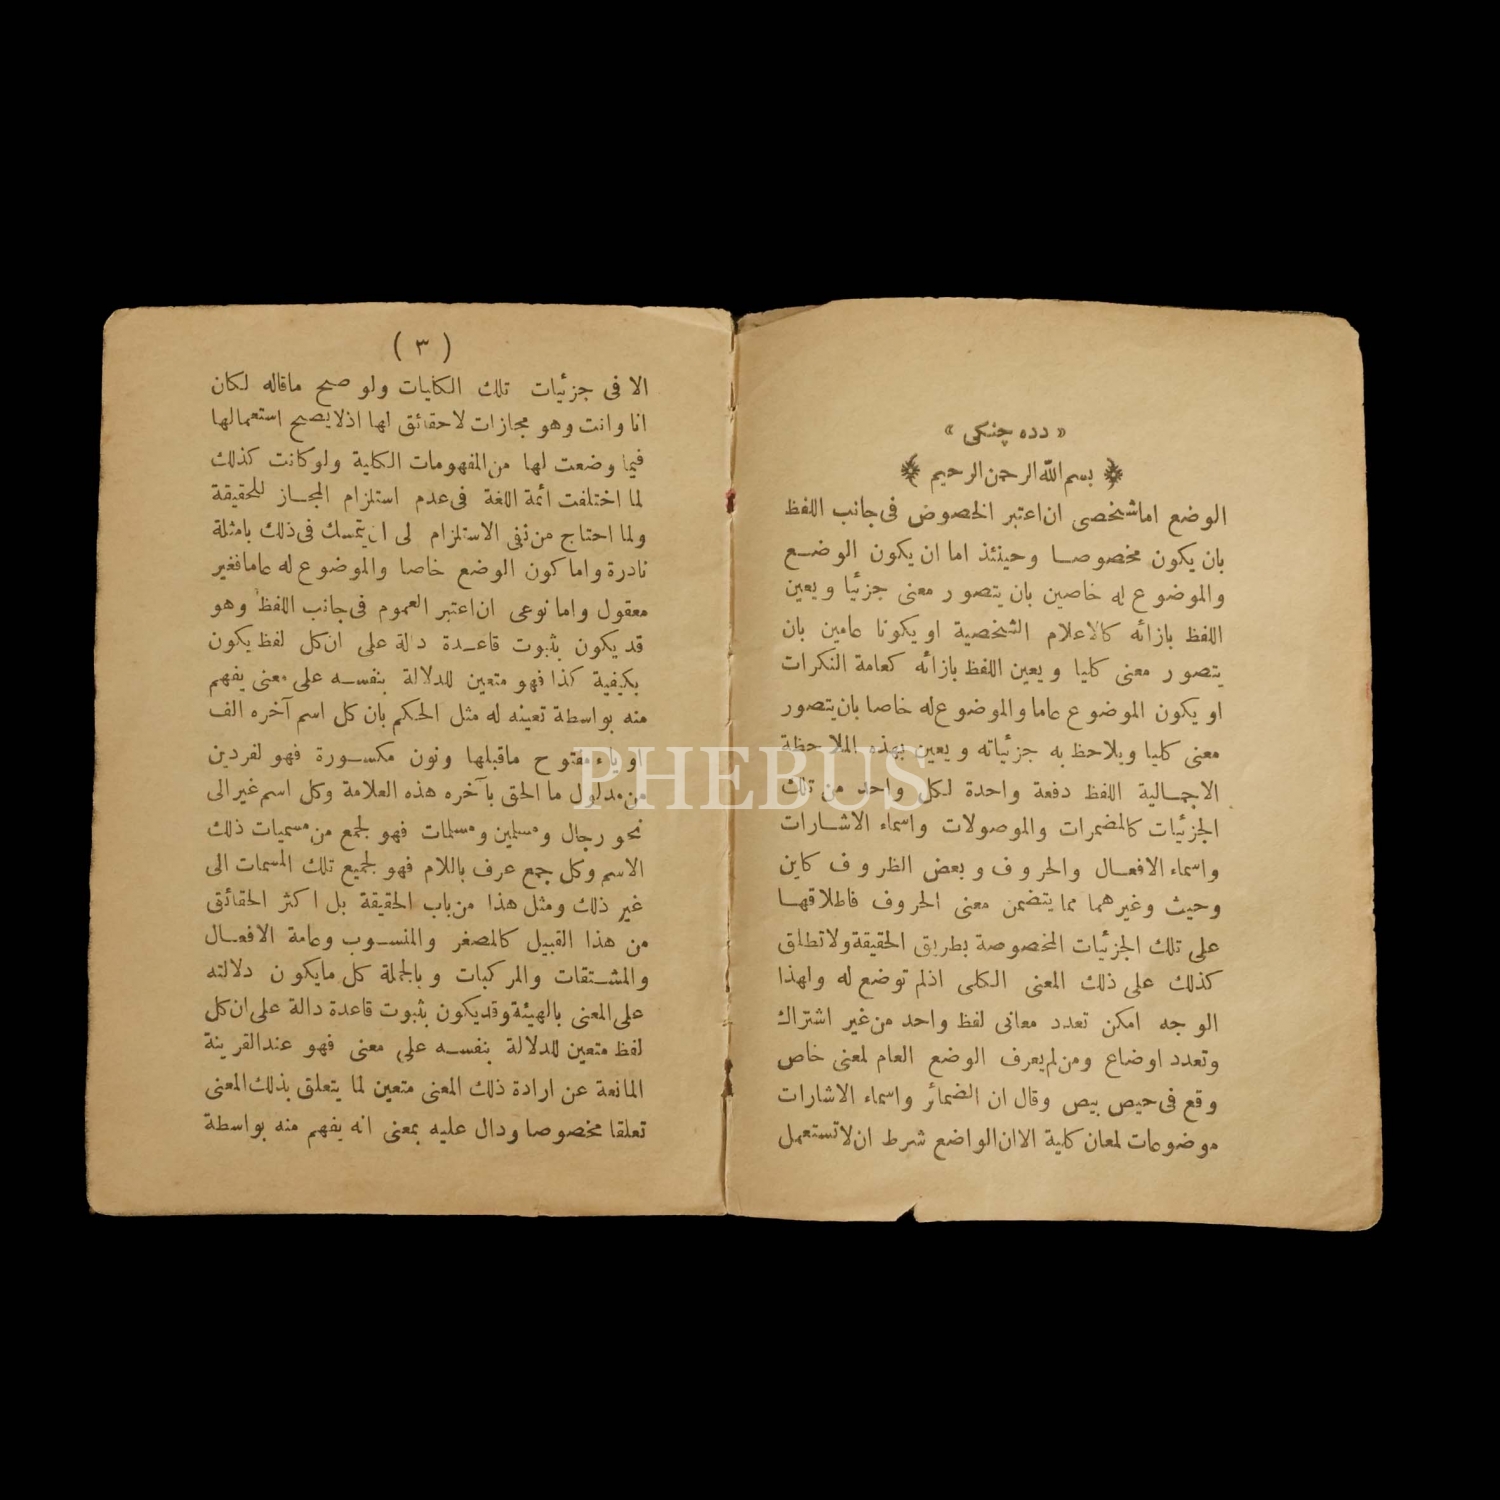 « دده چنكى »
بسم الله الرحمن الرحيم
الوضع اما شخصى ان اعتبر الخصوص فى جانب اللفظ
بان يكون مخصوصا وحينئذ اما ان يكون الوضع
والموضوع له خاصين بان يتصور معنى جزئيا ويعين
اللفظ بازائه كالاعلام الشخصية او يكونا عامين بان
يتصور معنى كليا ويعين اللفظ بازائه كعامة النكرات
او يكون الموضوع عاما والموضوع له خاصا بان يتصور
معنى كليا ويلاحظ به جزئياته ويعين بهذه الملاحظة
الاجمالية اللفظ دفعة واحدة لكل واحد من تلك
الجزئيات كالمضمرات والموصولات واسماء الاشارات
واسماء الافعال والحروف وبعض الظروف كاين
وحيث وغيرهما مما يتضمن معنى الحروف فاطلاقها
على تلك الجزئيات المخصوصة بطريق الحقيقة ولا تطلق
كذلك على ذلك المعنى الكلى اذلم توضع له ولهذا
الوجه امكن تعدد معانى لفظ واحد من غير اشتراك
وتعدد اوضاع ومن لم يعرف الوضع العام لمعنى خاص
وقع فى حيص بيص وقال ان الضمائر واسماء الاشارات
موضوعات لمعان كلية الا ان الواضع شرط ان لا تستعمل
( ٣ )
الا فى جزئيات تلك الكليات ولو صح ماقاله لكان
انا وانت وهو مجازات لا حقائق لها اذ لا يصح استعمالها
فيما وضعت لها من المفهومات الكلية ولو كانت كذلك
لما اختلفت ائمة اللغة فى عدم استلزام المجاز للحقيقة
ولما احتاج من نفى الاستلزام الى ان يتمسك فى ذلك بامثلة
نادرة واما كون الوضع خاصا والموضوع له عاما فغير
معقول واما نوعى ان اعتبر العموم فى جانب اللفظ وهو
قد يكون بثبوت قاعدة دالة على ان كل لفظ يكون
بكيفية كذا فهو متعين للدلالة بنفسه على معنى يفهم
منه بواسطة تعينه له مثل الحكم بان كل اسم آخره الف
او ياء مفتوح ماقبلها ونون مكسورة فهو لفردين
من مدلول ما الحق بآخره هذه العلامة وكل اسم غير الى
نحو رجال ومسلمين ومسلمات فهو لجمع من مسميات ذلك
الاسم وكل جمع عرف باللام فهو لجميع تلك المسمات الى
غير ذلك ومثل هذا من باب الحقيقة بل اكثر الحقائق
من هذا القبيل كالمصغر والمنسوب وعامة الافعال
والمشتقات والمركبات وبالجملة كل مايكون دلالته
على المعنى بالهيئة وقد يكون بثبوت قاعدة دالة على ان كل
لفظ متعين للدلالة بنفسه على معنى فهو عند القرينة
المانعة عن ارادة ذلك المعنى متعين لما يتعلق بذلك المعنى
تعلقا مخصوصا ودال عليه بمعنى انه يفهم منه بواسطة
PHEBUS